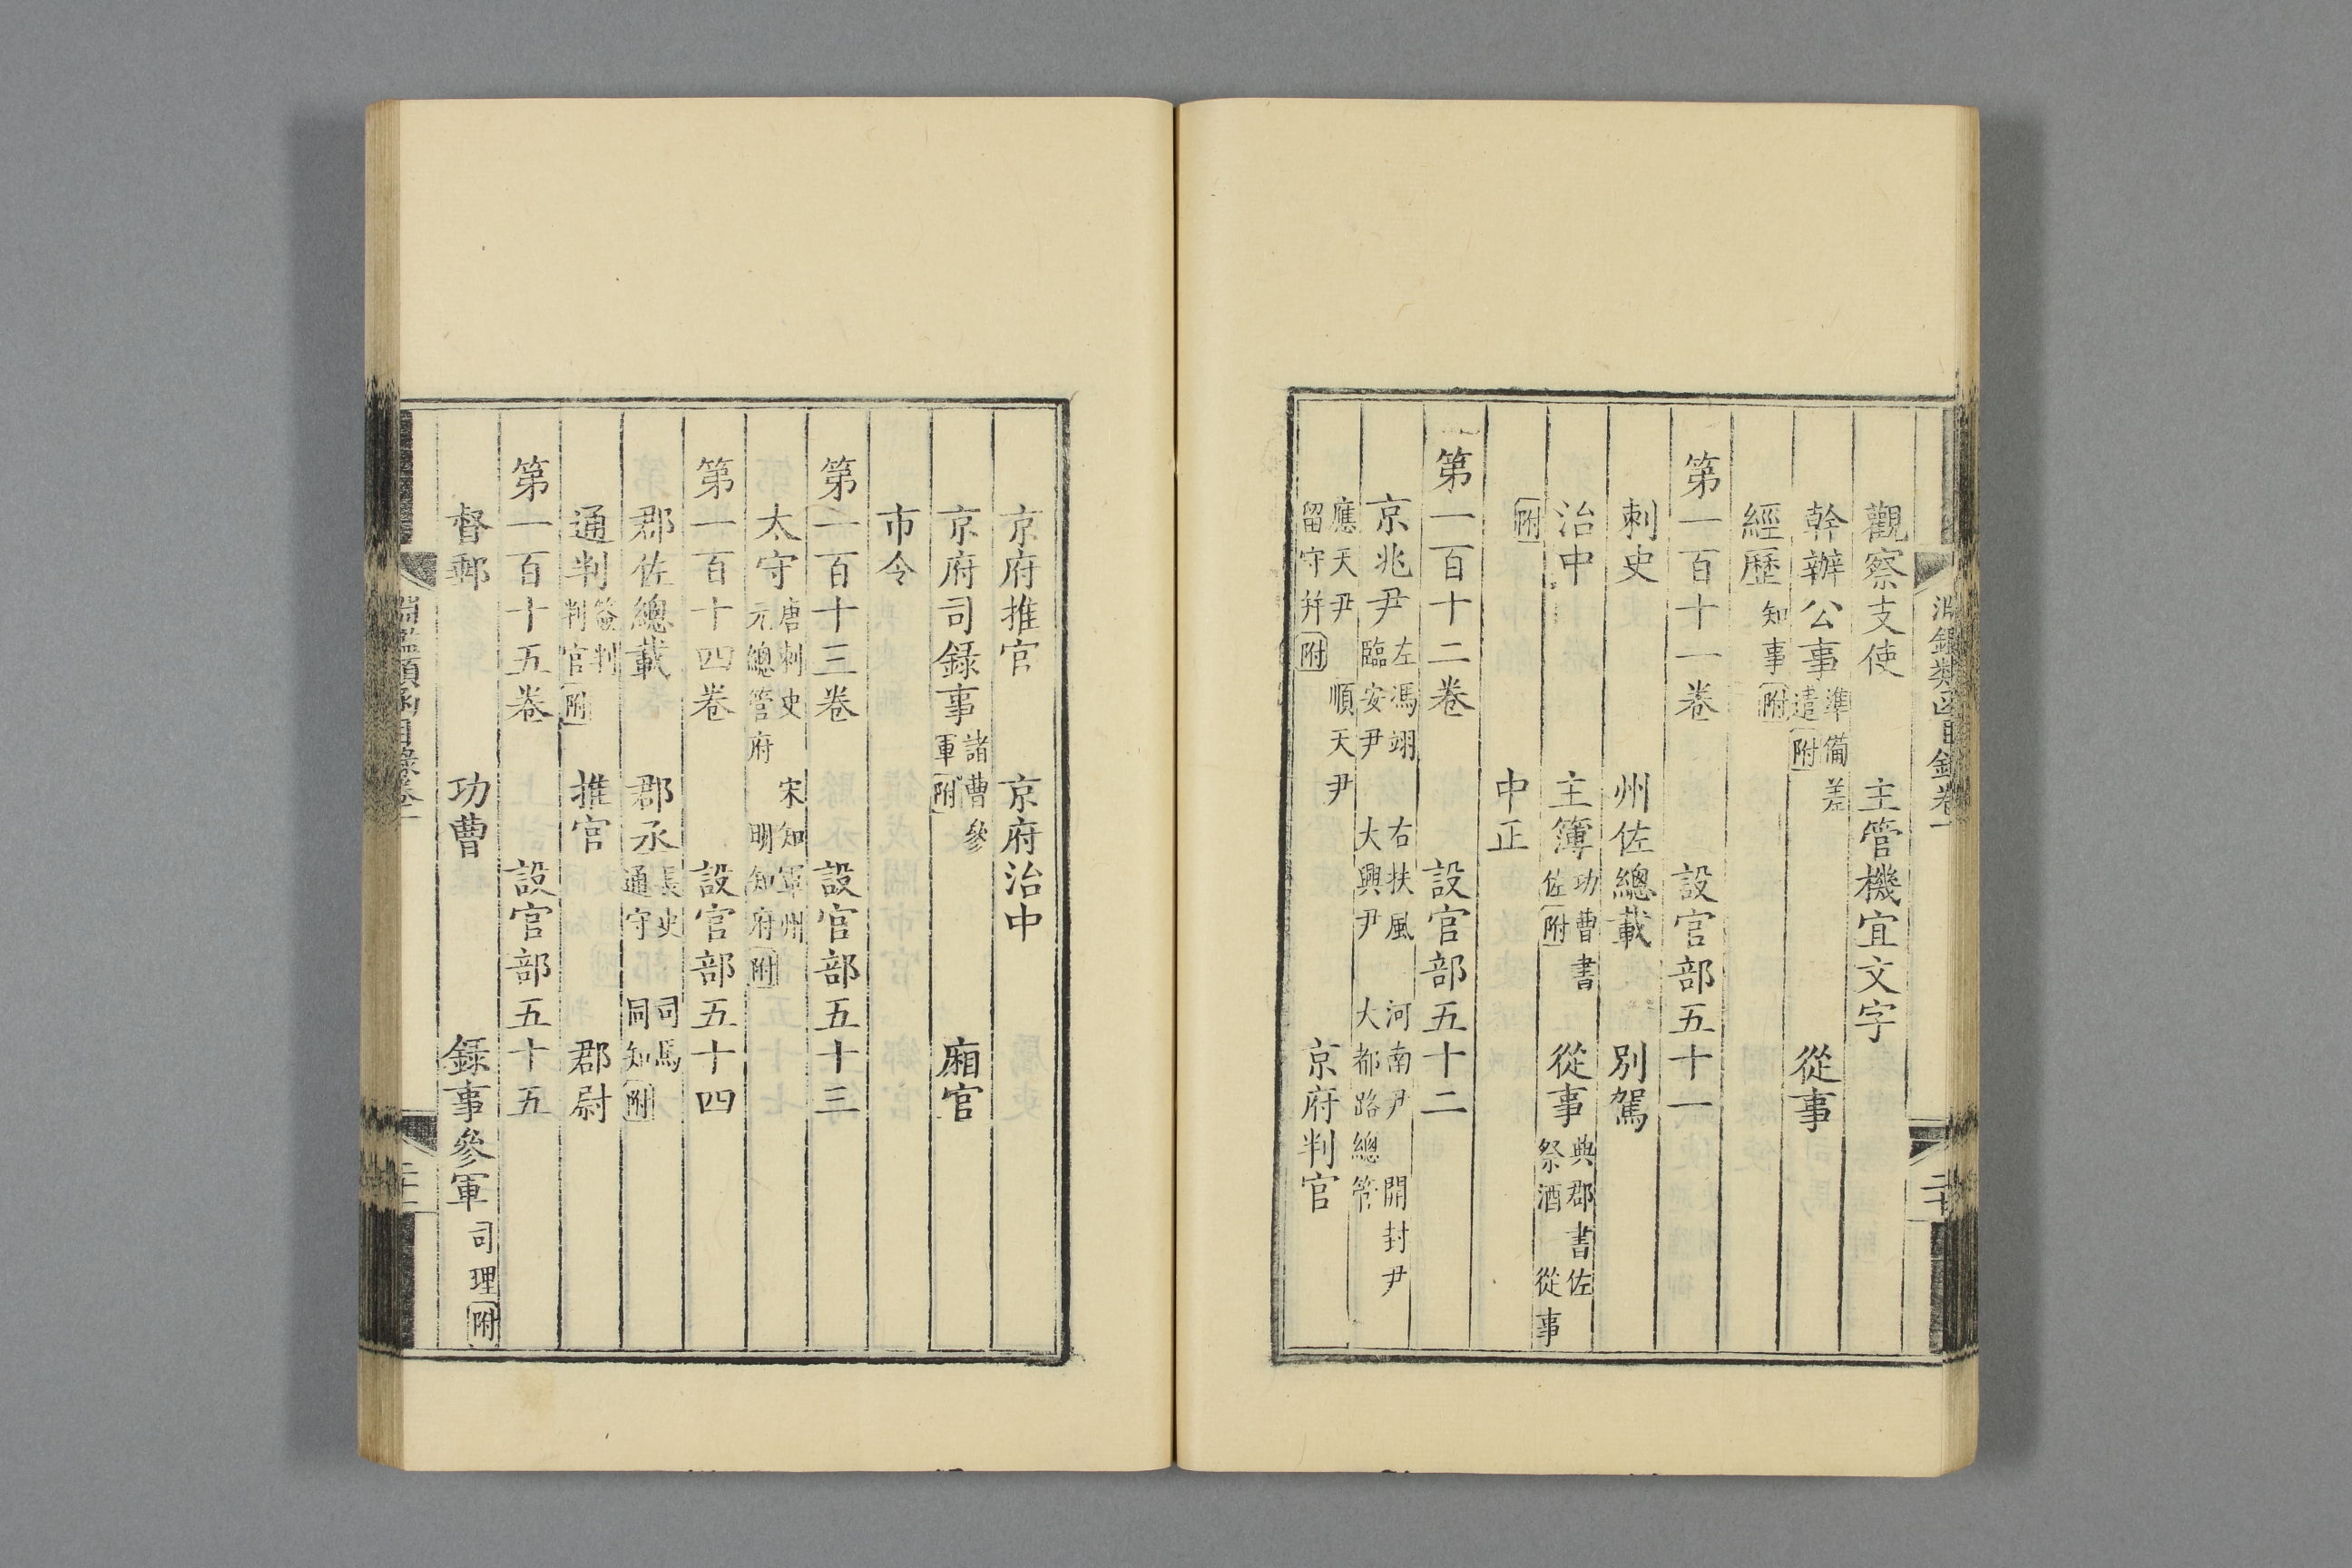 觀察支使 主管機宜文字
幹辦公事 準備差遣附 從事
經歷 知事附
第一百十一卷 設官部五十一
刺史 州佐總載 別駕
治中 主簿 功曹書佐附 從事 典郡書佐 祭酒從事
附 中正
第一百十二卷 設官部五十二
京兆尹 左馮翊 右扶風 河南尹 開封尹 臨安尹 大興尹 大都路總管
應天尹 順天尹 留守并附 京府判官
京府推官 京府治中
京府司録事 諸曹參軍附 廂官
市令
第一百十三卷 設官部五十三
太守 唐刺史 宋知軍州 元總管府 明知府附
第一百十四卷 設官部五十四
郡佐總載 郡丞 長史 司馬 通守 同知附
通判 簽判 判官附 推官 郡尉
第一百十五卷 設官部五十五
督郵 功曹 録事參軍 司理附